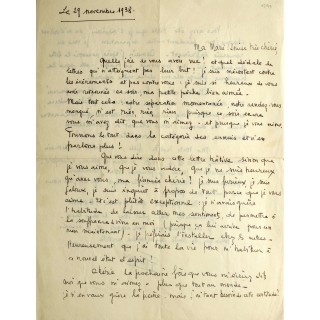 Le 29 novembre 1938.
Ma Marie-Louise très chérie
Quelle joie de vous avoir vue ! et quel dédale de
lettres qui n'atteignent pas leur but ! Je suis mécontent contre
les événements et pas contre vous. Je suis si heureux de vous
avoir retrouvée ce soir, ma petite bien aimée.
Mais tout cela : notre séparation momentanée, notre rendez-vous
manqué, n'est rien, rien, rien puisque ce soir encore
vous m'avez dit que vous m'aimiez et puisque je vous aime
Trinons le tout dans la catégorie des ennuis et n'en
parlons plus !
Que vous dire dans cette lettre hâtive, sinon que
je vous aime, que je vous adore, que je ne suis heureux
qu'avec vous, ma chérie ! je suis furieux, je suis
jaloux, je suis inquiet à propos de tout parce que je vous
aime. Et c'est plutôt exceptionnel : je n'avais guère
l'habitude de laisser aller mes sentiments, de permettre à
la souffrance
bien maintenant) de s'installer chez moi
Heureusement que j'ai toute la vie pour m'habituer à
ce nouvel état d'esprit !
Chérie la prochaine fois que vous m'écrirez dit
moi que vous m'aimez plus que tout au monde
je n'en vaux guère la peine, mais j'ai tant besoin de cette certitude !